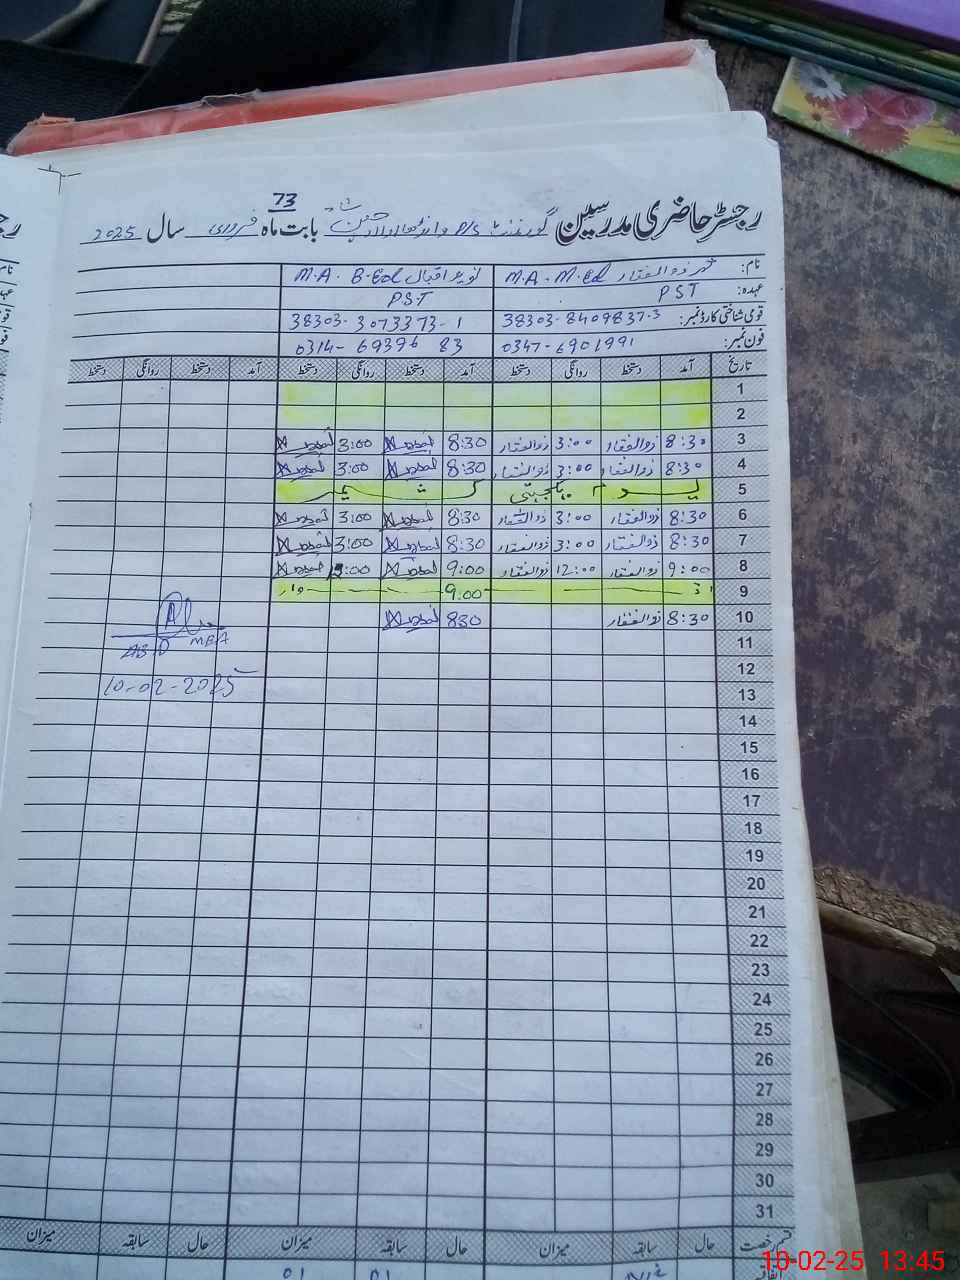 73
رجسٹر حاضری مدرسین گورنمنٹ P/S بابت ماہ فروری سال 2025
نام: محمد ذوالفقار M.A. M.Ed نوید اقبال M.A. B.Ed
عہدہ: PST PST
قومی شناختی کارڈ نمبر: 38303-8409837-3 38303-3073373-1
فون نمبر: 0347-6901991 0314-6939683
تاریخ آمد دستخط روانگی دستخط آمد دستخط روانگی دستخط آمد دستخط روانگی دستخط
1
2
3 8:30 ذوالفقار 3:00 ذوالفقار 8:30 3:00
4 8:30 ذوالفقار 3:00 ذوالفقار 8:30 3:00
5 یوم یکجہتی کشمیر
6 8:30 ذوالفقار 3:00 ذوالفقار 8:30 3:00
7 8:30 ذوالفقار 3:00 ذوالفقار 8:30 3:00
8 9:00 ذوالفقار 12:00 ذوالفقار 9:00 :00
9 اتوار 9.00
10 8:30 ذوالفقار 830
11
MBA
12
10-02-2025
13
14
15
16
17
18
19
20
21
22
23
24
25
26
27
28
29
30
31
قسم رخصت حال سابقہ میزان حال سابقہ میزان حال سابقہ میزان
10-02-25 13:45